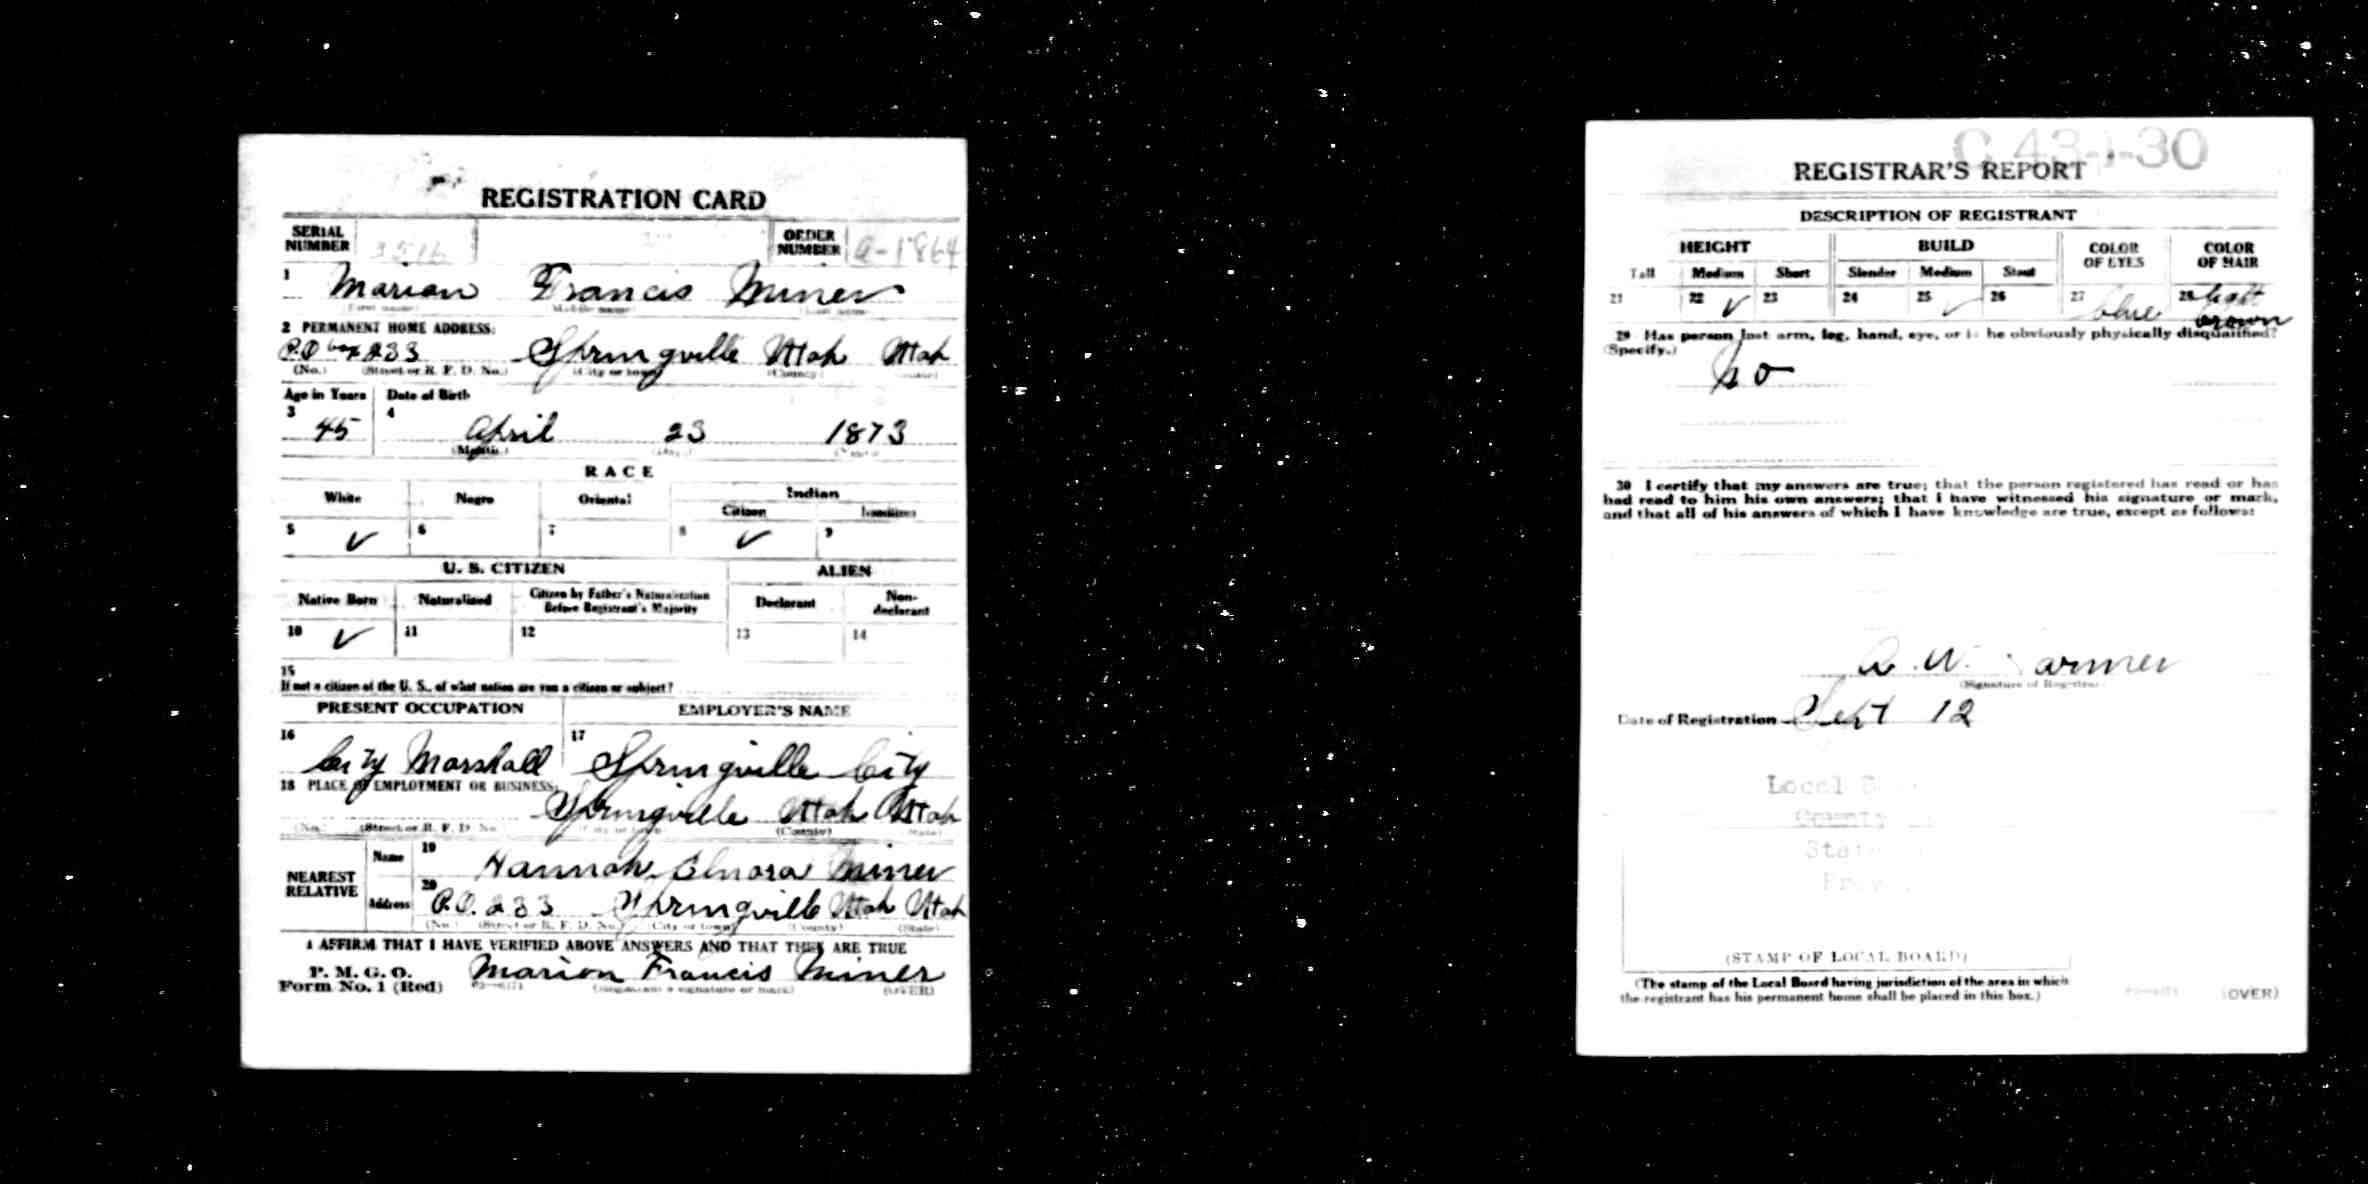 REGISTRATION CARD
SERIAL NUMBER 3516 ORDER NUMBER a-1864
1 Marian Francis Miner
(First name) (Middle name) (Last name)
2 PERMANENT HOME ADDRESS:
P.O box 233 Springville Utah Utah
(No.) (Street or R. F. D. No.) (City or town) (County) (State)
Age in Years Date of Birth
3 4
45 April 23 1873
(Month.) (Day.) (Year.)
RACE
White Negro Oriental Indian
Citizen
5 ✓ 6 7 8 ✓ 9
U. S. CITIZEN ALIEN
Native Born Naturalized Citizen by Father's Naturalization Before Registrant's Majority Declarant Non-declarant
10 ✓ 11 12 13 14
15
If not a citizen of the U. S., of what nation are you a citizen or subject?
PRESENT OCCUPATION EMPLOYER'S NAME
16 City Marshall 17 Springville City
18 PLACE OF EMPLOYMENT OR BUSINESS:
Springville Utah Utah
(No.) (Street or R. F. D. No.) (City or town) (County) (State)
NEAREST RELATIVE
Name 19 Hannah Elnora Miner
Address 20 P.O. 233 Springville Utah Utah
(No.) (Street or R. F. D. No.) (City or town) (County) (State)
I AFFIRM THAT I HAVE VERIFIED ABOVE ANSWERS AND THAT THEY ARE TRUE
P. M. G. O.
Form No. 1 (Red) Marion Francis Miner
(Registrant's signature or mark) (OVER)
C 43-1-30
REGISTRAR'S REPORT
DESCRIPTION OF REGISTRANT
HEIGHT BUILD COLOR OF EYES COLOR OF HAIR
Tall Medium Short Slender Medium Stout
21 22 ✓ 23 24 25 ✓ 26 27 blue 28 light brown
29 Has person lost arm, leg, hand, eye, or is he obviously physically disqualified?
(Specify.)
no
30 I certify that my answers are true; that the person registered has read or has
had read to him his own answers; that I have witnessed his signature or mark,
and that all of his answers of which I have knowledge are true, except as follows:
A. W.
(Signature of Registrar)
Date of Registration Sept 12
Local
County
State
(STAMP OF LOCAL BOARD)
(The stamp of the Local Board having jurisdiction of the area in which
the registrant has his permanent home shall be placed in this box.)
(OVER)